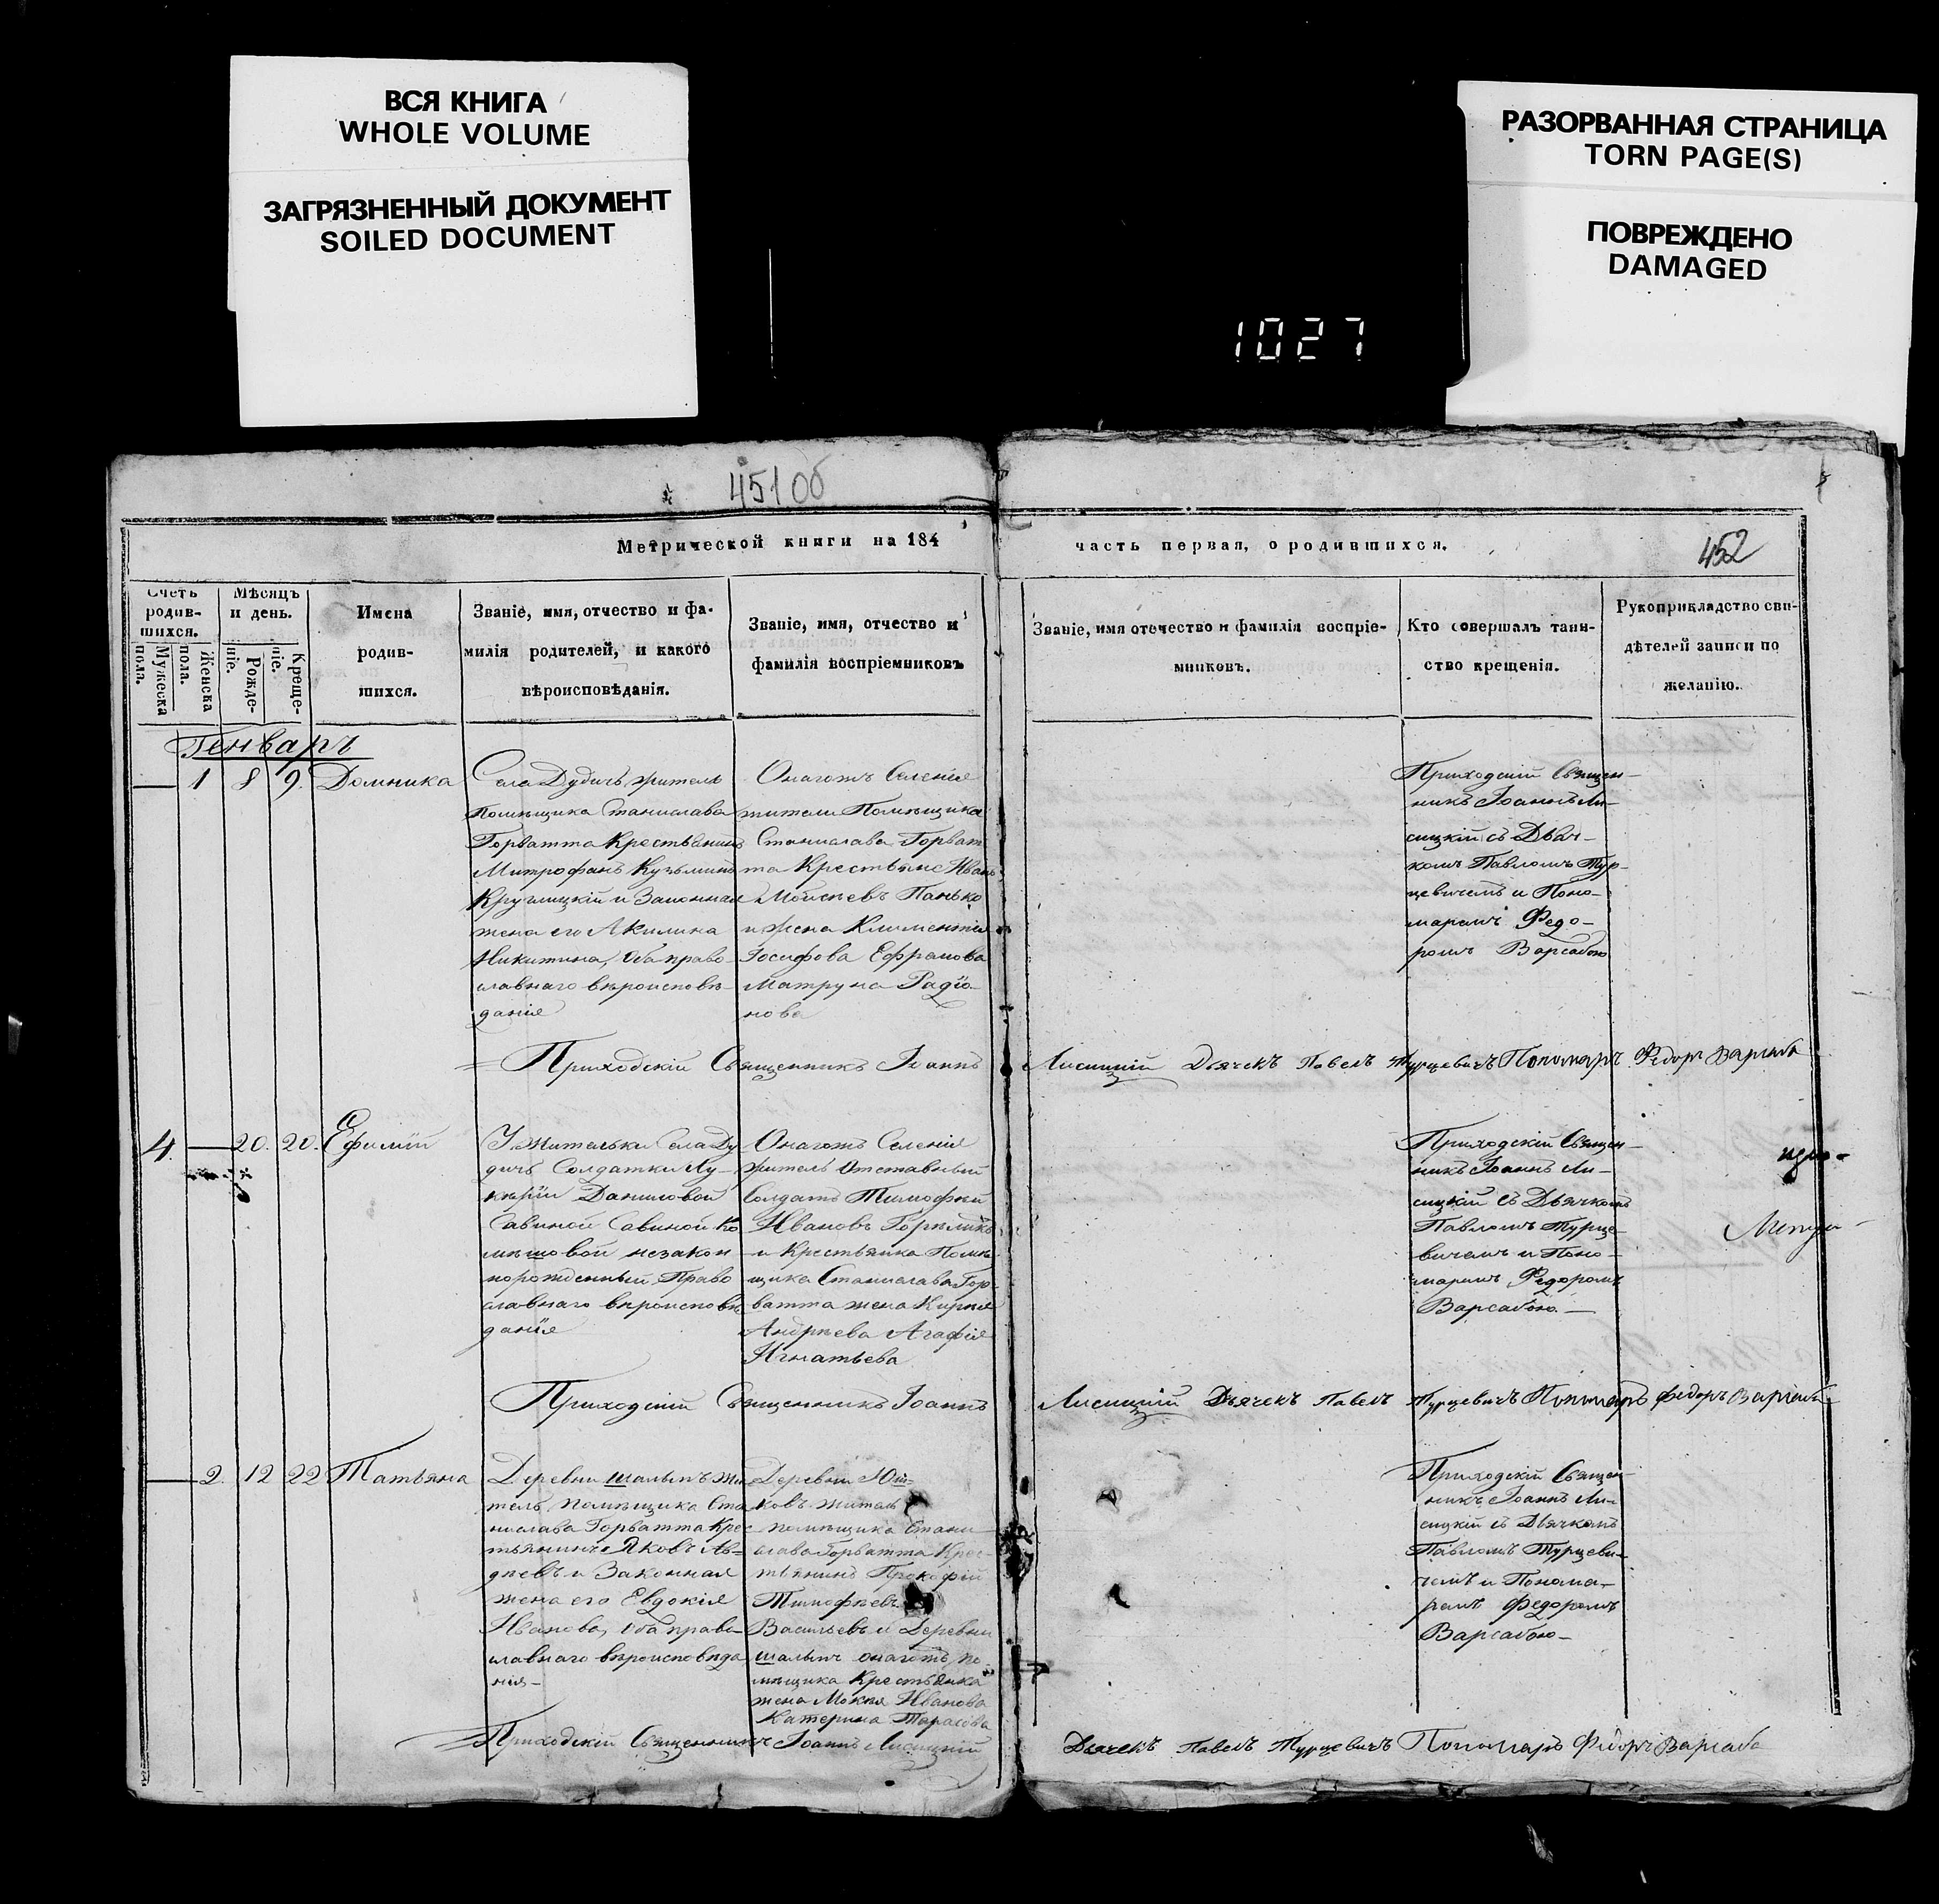 ВСЯ КНИГА
WHOLE VOLUME
ЗАГРЯЗНЕННЫЙ ДОКУМЕНТ
SOILED DOCUMENT
РАЗОРВАННАЯ СТРАНИЦА
TORN PAGE(S)
ПОВРЕЖДЕНО
DAMAGED
1027
451 об
Метрической книги на 184
часть первая, о родившихся.
452
Счетъ
родив-
шихся.
Мужеска
пола.
Женска
пола.
Мѣсяцъ
и день.
Рожде-
ніе.
Креще-
ніе.
Имена
родив-
шихся.
Званіе, имя, отчество и фа-
милія родителей, и какого
вѣроисповѣданія.
Званіе, имя, отчество и
фамилія воспріемниковъ
Званіе, имя отечество и фамилія воспріе-
мниковъ.
Кто совершалъ таин-
ство крещенія.
Рукоприкладство сви-
дѣтелей записи по
желанію.
Генварь
1 8 9. Домника
Села Дудичъ жителя
помѣщика Станислава
Горватта Крестьянинъ
Митрофанъ Кузьминъ
Круглицкій и Законная
жена его Акилина
Никитина, Оба право-
славнаго вѣроисповѣ-
данія
Онагожъ Селенія
жители Помѣщика
Станислава Горват
та Крестьяне Иванъ
Мойсѣевъ Панько
и жена Климентія
Іосифова Ефрамова
Матруна Радіо-
нова
Приходскій Священ-
никъ Іоаннъ Ли-
сицкій съ Дьяч-
комъ Павломъ Тур-
цевичемъ и Поно-
маремъ Федо-
ромъ Варсабою
Приходскій Священникъ Іоаннъ Лисицкій Дьячекъ Павелъ Турцевичъ Пономарь Федоръ Варсаба
4. 20. 20. Ефимій
У жительки Села Ду
дичъ Солдатки Лу-
керіи Даниловой
Савиной Савиной Ко
мѣшовой незакон
норожденный Право
славнаго вѣроисповѣ
данія
Онагожъ Селенія
житель Отставный
Солдатъ Тимофей
Ивановъ Горѣликъ
и Крестьянка Помѣ
щика Станислава Гор-
ватта жена Кирилы
Андрѣева Агафія
Игнатьева
Приходскій Священ-
никъ Іоаннъ Ли-
сицкій съ Дьячкомъ
Павломъ Турце-
вичемъ и Поно-
маремъ Федоромъ
Варсабою.
Приходскій Священникъ Іоаннъ Лисицкій Дьячекъ Павелъ Турцевичъ Пономарь Федоръ Варсаба
2. 12 22 Татьяна
Деревни Шалыпъ жи
тель помѣщика Ста
нислава Горватта Крес
тьянинъ Яковъ Ав-
дѣевъ и Законная
жена его Евдокія
Иванова, Оба право-
славнаго вѣроисповѣда
нія
Деревни
ковъ житель
помѣщика Стани
слава Горватта Крес-
тьянинъ Прокофій
Тимофѣевъ
Васильевъ и Деревни
Шалыпъ онагожъ по-
мѣщика Крестьянка
жена Мокея Иванова
Катерина Тарасова
Приходскій Священ-
никъ Іоаннъ Ли-
сицкій съ Дьячкомъ
Павломъ Турцеви-
чемъ и Понома-
ремъ Федоромъ
Варсабою
Приходскій Священникъ Іоаннъ Лисицкій Дьячекъ Павелъ Турцевичъ Пономарь Федоръ Варсаба